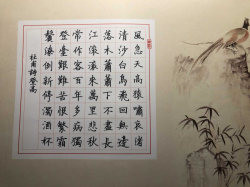 風急天高猿嘯哀渚
清沙白鳥飛迴無邊
落木蕭蕭下不盡長
江滾滾來萬里悲秋
常作客百年多病獨
登臺艱難苦恨繁霜
鬢潦倒新停濁酒杯
杜甫詩登高